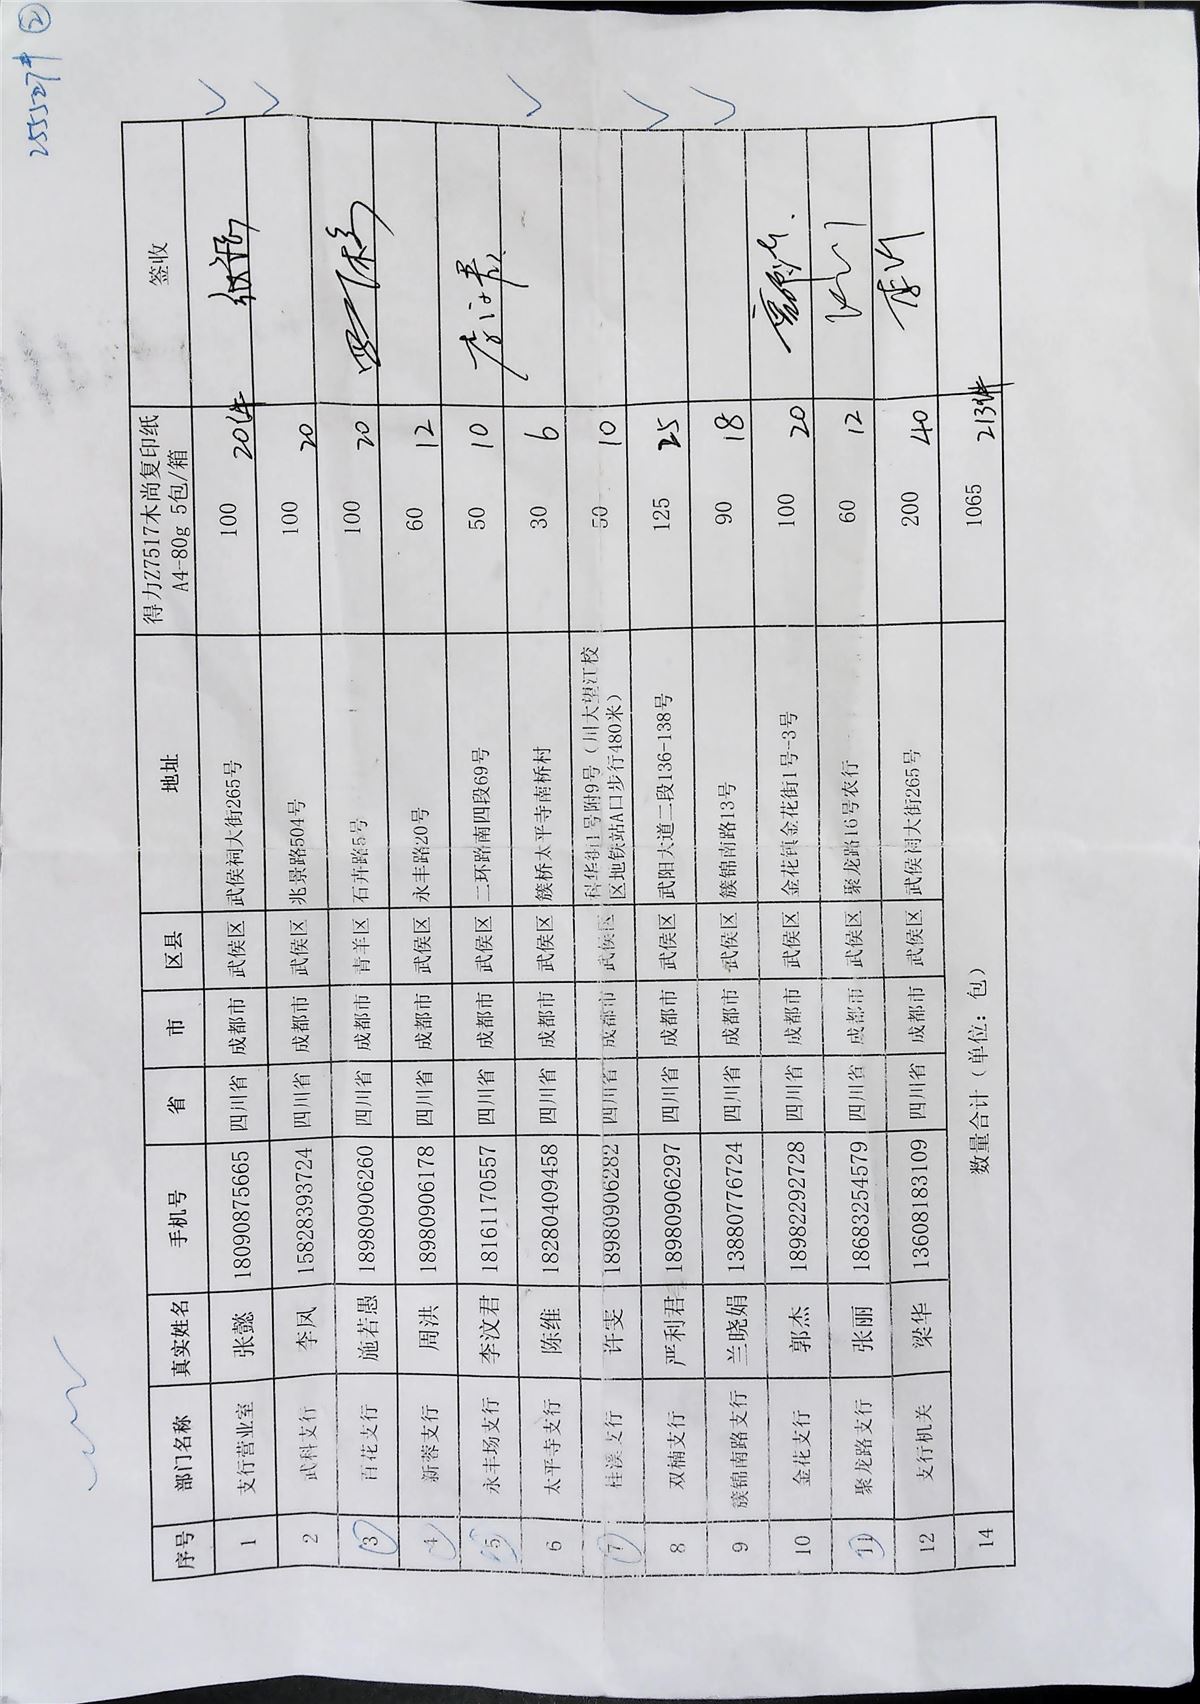 255527件 ②
序号 部门名称 真实姓名 手机号 省 市 区县 地址 得力Z7517木尚复印纸 A4-80g 5包/箱 签收
1 支行营业室 张懿 18090875665 四川省 成都市 武侯区 武侯祠大街265号 100 20件
2 武科支行 李凤 15828393724 四川省 成都市 武侯区 兆景路504号 100 20
3 百花支行 施若愚 18980906260 四川省 成都市 青羊区 石卉路5号 100 20
4 新蓉支行 周洪 18980906178 四川省 成都市 武侯区 永丰路20号 60 12
5 永丰场支行 李汶君 18161170557 四川省 成都市 武侯区 二环路南四段69号 50 10
6 太平寺支行 陈维 18280409458 四川省 成都市 武侯区 簇桥太平寺南桥村 30 6
7 桂溪支行 许雯 18980906282 四川省 成都市 武侯区 科华街1号附9号（川大望江校区地铁站A口步行480米） 50 10
8 双楠支行 严利君 18980906297 四川省 成都市 武侯区 武阳大道二段136-138号 125 25
9 簇锦南路支行 兰晓娟 13880776724 四川省 成都市 武侯区 簇锦南路13号 90 18
10 金花支行 郭杰 18982292728 四川省 成都市 武侯区 金花镇金花街1号-3号 100 20
11 聚龙路支行 张丽 18683254579 四川省 成都市 武侯区 聚龙路16号农行 60 12
12 支行机关 梁华 13608183109 四川省 成都市 武侯区 武侯祠大街265号 200 40
14 数量合计（单位：包） 1065 213件